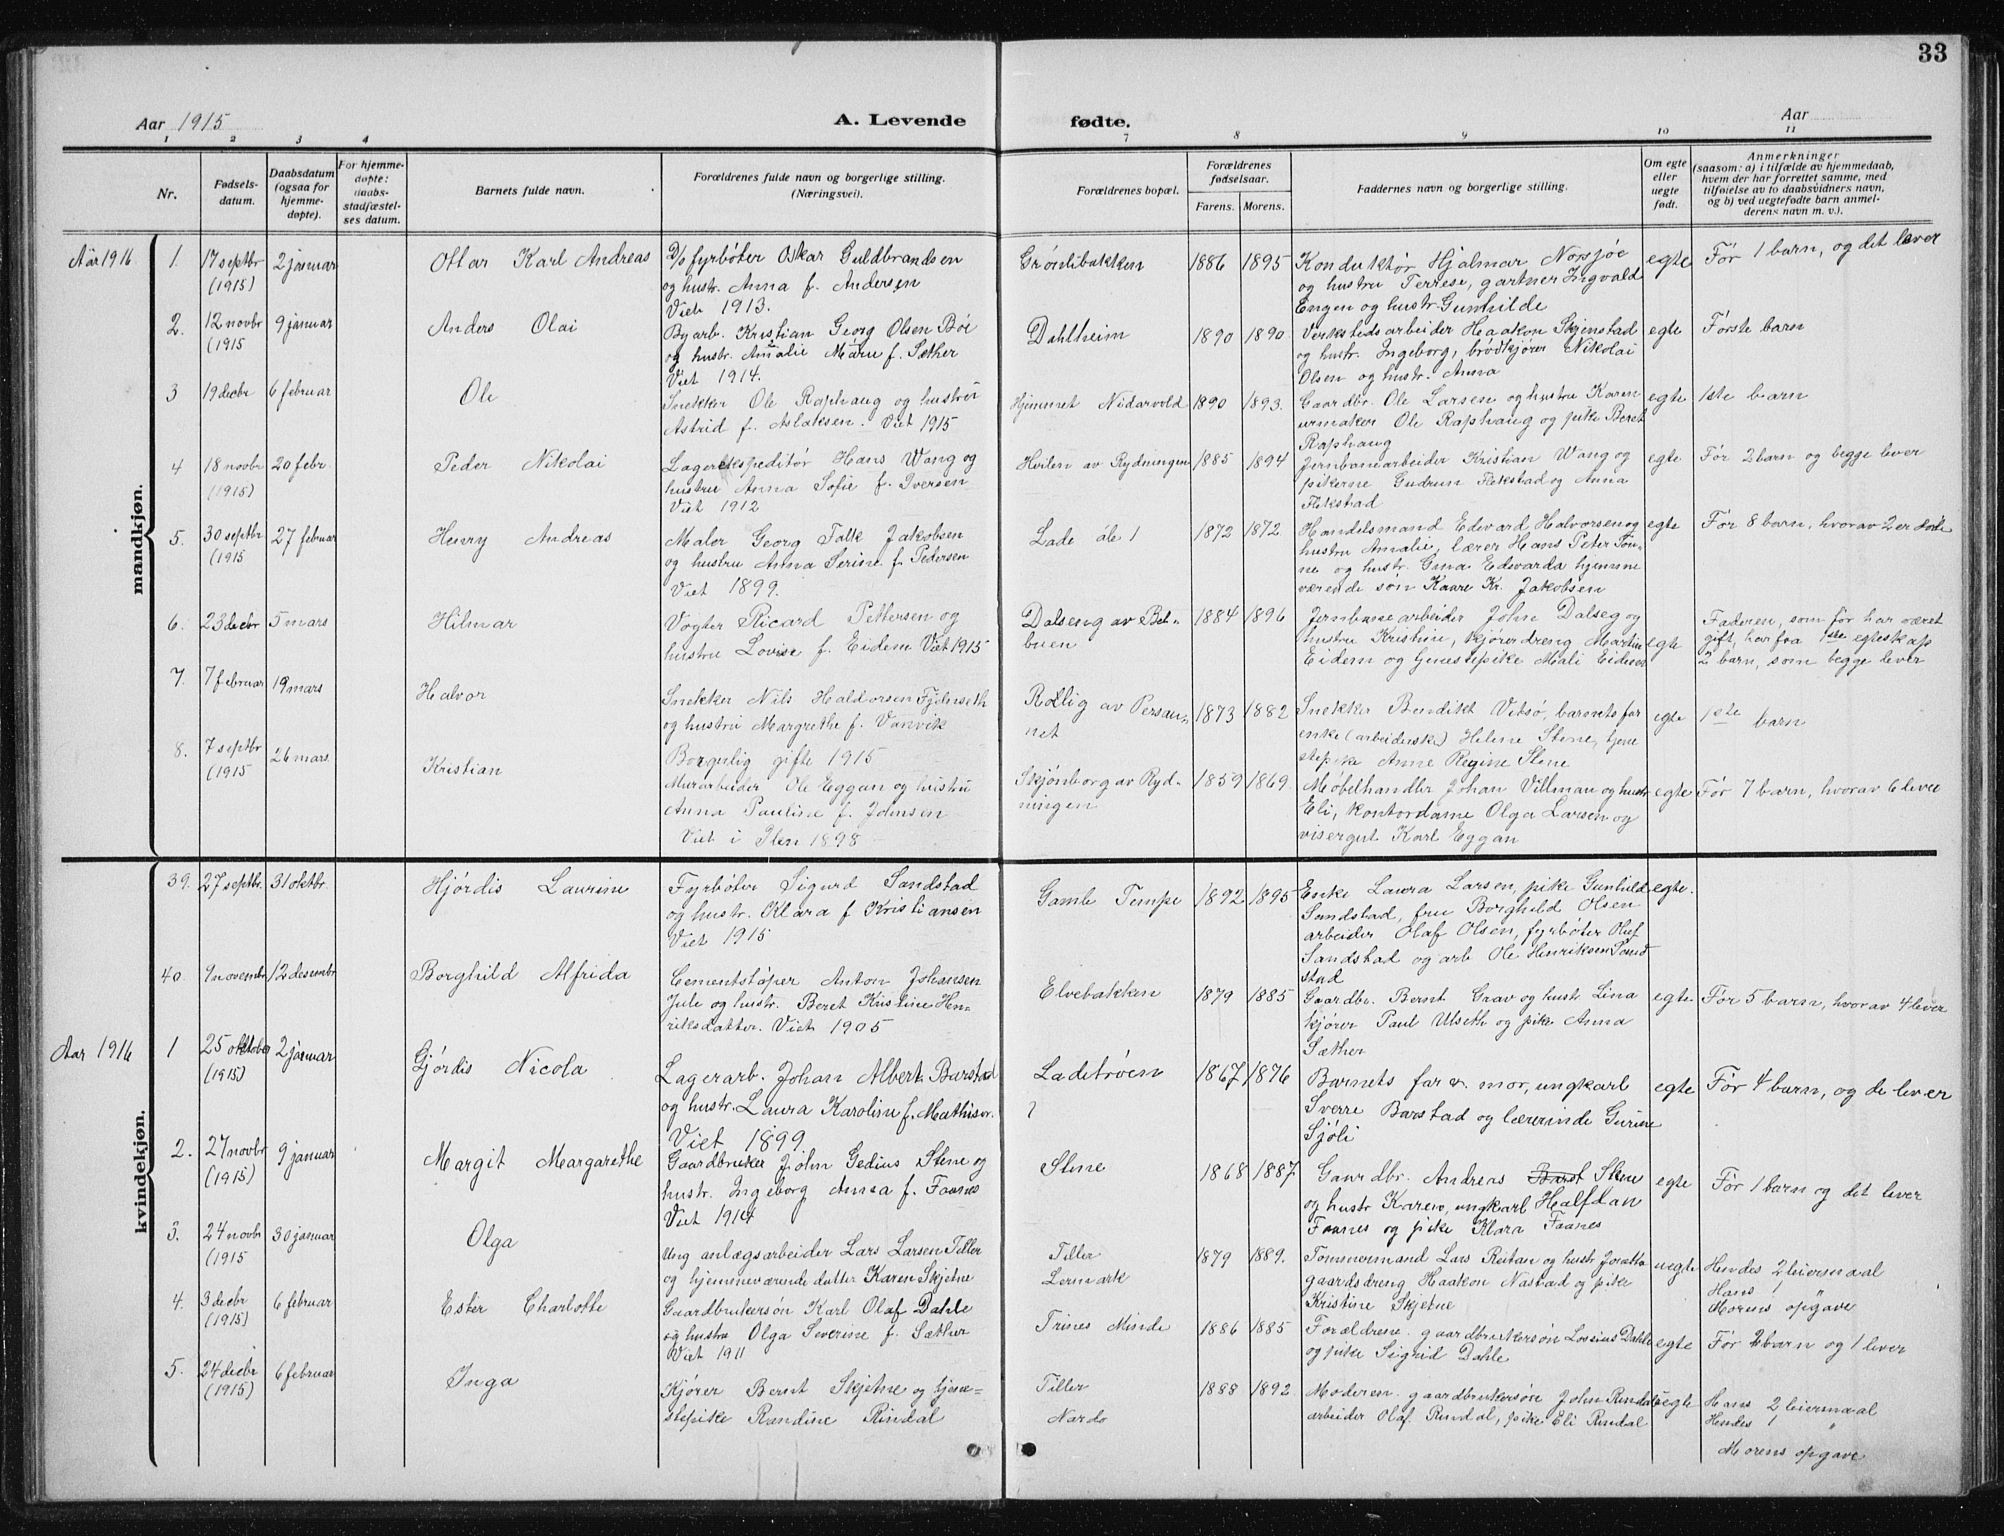 33
Aar 1915
A. Levende fødte.
Aar
1 2 3 4 7 8 9 10 11
Nr.
Fødsels-
datum.
Daabsdatum
(ogsaa for
hjemme-
døpte).
For hjemme-
døpte:
daabs-
stadfæstel-
ses datum.
Barnets fulde navn.
Forældrenes fulde navn og borgerlige stilling.
(Næringsvei).
Forældrenes bopæl.
Forældrenes
fødselsaar.
Farens. Morens.
Faddernes navn og borgerlige stilling.
Om egte
eller
uegte
født.
Anmerkninger
(saasom: a) i tilfælde av hjemmedaab,
hvem der har forrettet samme, med
tilføielse av to daabsvidners navn,
og b) ved uegtefødte barn anmel-
derens navn m. v.).
mandkjøn.
Aar 1916
1. 17 septbr (1915) 2 januar
Ottar Karl Andreas
fyrbøter Oskar Guldbrandsen
og hustr. Anna f. Andersen
Viet 1913.
Grønlibakken 1886 1895
Konduktør Hjalmar Norsjøe
og hustru Terrese, gartner Ingvald
Engen og hustr. Gunhilde
egte
Før 1 barn, og det lever
2. 12 novbr (1915 9 januar
Anders Olai
Byarb. Kristian Georg Olsen Bøe
og hustr. Amalie Marie f. Sæther
Viet 1914.
Dahlheim 1890 1890
Verkstedsarbeider Haakon Skjenstad
og hustr. Ingeborg, brødkjører Nikolai
Olsen og hustr. Anna
egte
Første barn
3 19 decbr 6 februar
Ole
Snekker Ole Raphaug og hustru
Astrid f. Aslaksen. Viet 1915
Hjemmet Nidarvold 1890 1893.
Gaardbr. Ole Larsen og hustru Karen
urmaker Ole Raphaug og pike Beret
Raphaug
egte
1ste barn
4 18 novbr (1915) 20 febr.
Peder Nikolai
Lagerekspeditør Hans Wang og
hustru Anna Sofie f. Iversen
Viet 1912
Hvilen av Rydningen 1885 1894
Jernbanearbeider Kristian Wang og
pikerne Gudrun Flekstad og Anna
Flekstad
egte
Før 2 barn og begge lever
5. 30 septbr (1915 27 februar
Henry Andreas
Maler Georg Falk Jakobsen
og hustru Anna Serine f. Pedersen
Viet 1899.
Lade åle 1 1872 1872
Handelsmand Edvard Halvorsen og
hustru Amalie, lærer Hans Peter Tøn-
ne og hustr. Gina Edevarda hjemme
værende søn Kaare Kr. Jakobsen
egte
Før 8 barn, hvorav 2 er døde
6. 23 decbr 5 mars
Hilmar
Vogter Ricard Pettersen og
hustru Lovise f. Eidem Viet 1915
Dalseng av Bel-
buen
1884 1896
Jernbanearbeider John Dalseg og
hustru Kristine, kjøredreng Martin
Eidem og tjenestepike Mali Eidem
egte
Faderen, som før har været
gift, har fra 1ste egteskap
2 barn, som begge lever
7. 7 februar 19 mars
Halvor
Snekker Nils Haldorsen Fjelnseth
og hustru Margrethe f. Vanvik
Borgerlig gifte 1915
Rolig av Persau-
net
1873 1882
Snekker Bendikt Vitsø, barnets far
enke (arbeiderske) Helene Stene, tjene
stepike Anne Regine Stene
egte
1ste barn
8. 7 septbr (1915 26 mars
Kristian
Murarbeider Ole Eggan og hustru
Anna Pauline f. Johnsen
Viet i Ilen 1898
Skjønborg av Ryd-
ningen
1859 1869.
Møbelhandler Johan Villman og hustr
Eli, kontordame Olga Larsen og
visergut Karl Eggan
egte
Før 7 barn, hvorav 6 lever
kvindekjøn.
39. 27 septbr. 31 oktbr.
Hjørdis Laurine
Fyrbøter Sigurd Sandstad
og hustr. Klara f. Kristiansen
Viet 1915
Gamle Tempe 1892 1895
Enke Laura Larsen, pike Gunhild
Sandstad, fru Borghild Olsen
arbeider Olaf Olsen, fyrbøter Oluf
Sandstad og arb. Ole Henriksen Sand
stad
egte.
40. 9 novembr 12 desembr
Borghild Alfrida
Cementstøper Anton Johansen
Jule og hustr. Beret Kristine Hen-
riksdatter. Viet 1905
Elvebakken 1879 1885
Gaardbr. Bernt Grav og hustr Lina
kjører Paul Ulseth og pike Anna
Sæther
egte
Før 5 barn, hvorav 4 lever
Aar 1916
1 25 oktober (1915) 2 januar
Gjørdis Nicola
Lagerarb. Johan Albert Barstad
og hustr. Laura Karoline f. Mathisen
Viet 1899
Ladetrøen
1
1867 1876
Barnets far & mor, ungkarl
Sverre Barstad og lærerinde Gurine
Sjøli
egte
Før 4 barn, og de lever
2. 27 novbr (1915) 9 januar
Margit Margarethe
Gaardbruker John Gedius Stene og
hustr. Ingeborg Anna f. Faanes
Viet 1914
Stene 1868 1887
Gaardbr. Andreas Barst Stene
og hustr Karen, ungkarl Halfdan
Faanes og pike Klara Faanes
egte
Før 1 barn og det lever
3. 24 novbr (1915 30 januar
Olga
Ung. anlægsarbeider Lars Larsen Tiller
og hjemmeværende datter Karen Skjetne
Tiller
Lermark
1879 1889.
Tømmermand Lars Reitan og hustr Joratta
gaardsdreng Haakon Nastad og pike
Kristine Skjetne
uegte
Hendes 2 leiermaal
Hans 1 "
Morens opgave
4. 3 decbr (1915) 6 februar
Ester Charlotte
Gaardbrukersøn Karl Olaf Dahle
og hustru Olga Severine f. Sæther
Viet 1911
Trines Minde 1886 1885
Forældrene, gaardbrukersøn Lossius Dahle
og pike Sigrid Dahle
egte
Før 2 barn og 1 lever
5. 24 decbr (1915) 6 februar
Inga
Kjører Bernt Skjetne og tjene-
stepike Randine Rindal
Tiller
Nardo
1888 1892.
Moderen, gaardbrukersøn John Rindal
arbeider Olaf Rindal, pike Eli Rindal
uegte
Hans 2 leiermaal
Hendes 1 "
Morens opgave